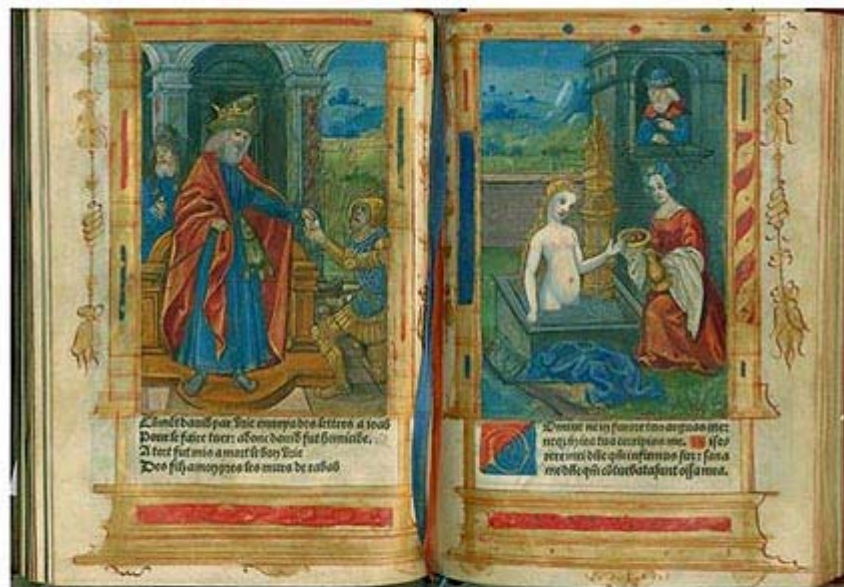 Comēt david par Urie envoya des lettres a ioab
Pour le faire tuer: a donc david fut homicide.
A tort fut mis a mort le bon Urie
Des filz amon pres les murs de rabab
Domine ne in furore tuo arguas me:
neq; in ira tua corripias me. Mise
rere mei dñe qm̄ infirmus sum: sana
me dñe qm̄ cōturbata sunt ossa mea.